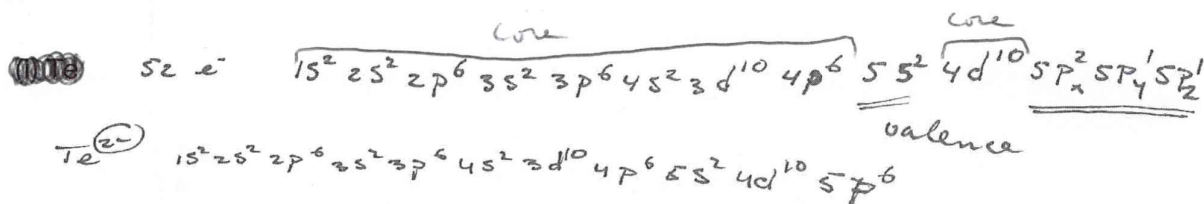 core core
Te 52 e⁻ 1s² 2s² 2p⁶ 3s² 3p⁶ 4s² 3d¹⁰ 4p⁶ 5s² 4d¹⁰ 5Pₓ² 5Pᵧ¹ 5P_z¹
valence
Te²⁻ 1s² 2s² 2p⁶ 3s² 3p⁶ 4s² 3d¹⁰ 4p⁶ 5s² 4d¹⁰ 5p⁶